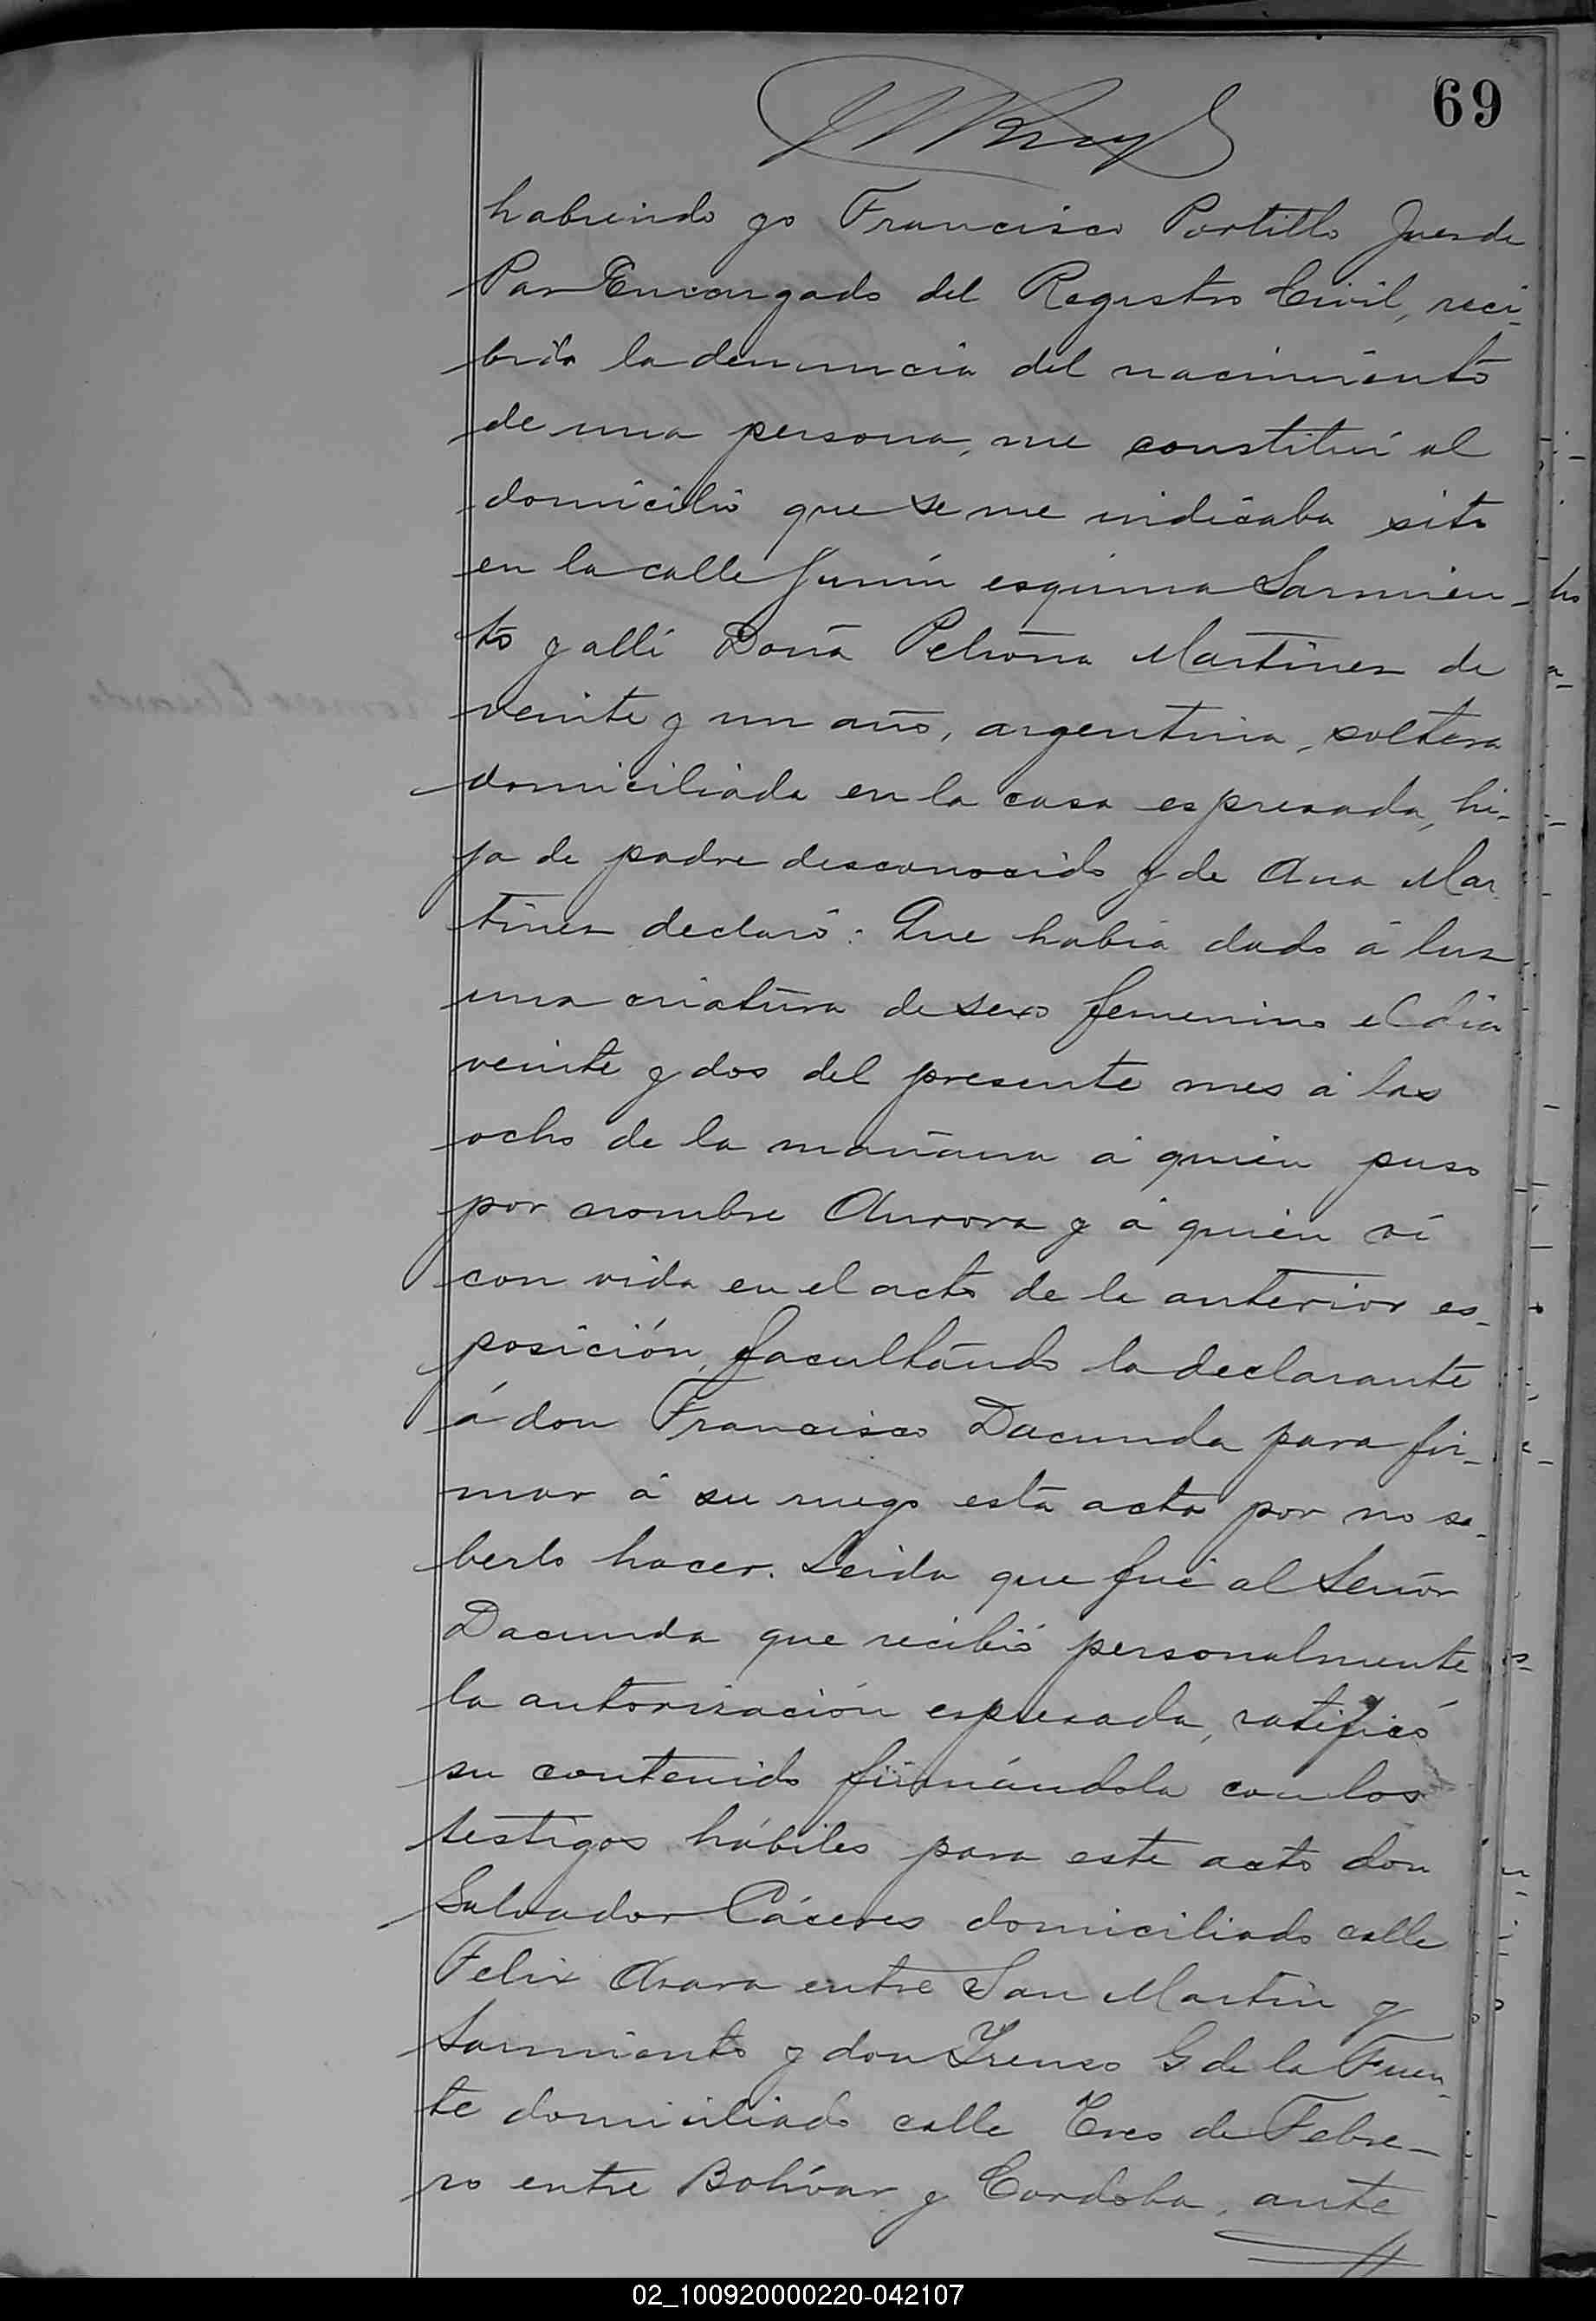 69
habiendo yo Francisco Portillo Juez de
Paz Encargado del Registro Civil, reci-
bido la denuncia del nacimiento
de una persona, me constituí al
domicilio que se me indicaba sito
en la calle Junín esquina Sarmien-
to y allí Doña Petrona Martinez de
veinte y un año, argentina, soltera
domiciliada en la casa espresada, hi-
ja de padre desconocido y de Ana Mar
tinez declaró: Que había dado á luz
una criatura de sexo femenino el día
veinte y dos del presente mes á las
ocho de la mañana á quien puso
por nombre Aurora y á quien ví
con vida en el acto de la anterior es-
posición, facultando la declarante
á don Francisco Dacunda para fir-
mar á su ruego esta acta por no sa-
berlo hacer. Leida que fué al Señor
Dacunda que recibió personalmente
la autorización espresada, ratificó
su contenido firmándola con los
testigos hábiles para este acto don
Salvador Cáceres domiciliado calle
Felix Azara entre San Martín y
Sarmiento y don Ireneo G de la Fuen-
te domiciliado calle Tres de Febre-
ro entre Bolívar y Cordoba, ante
02_100920000220-042107